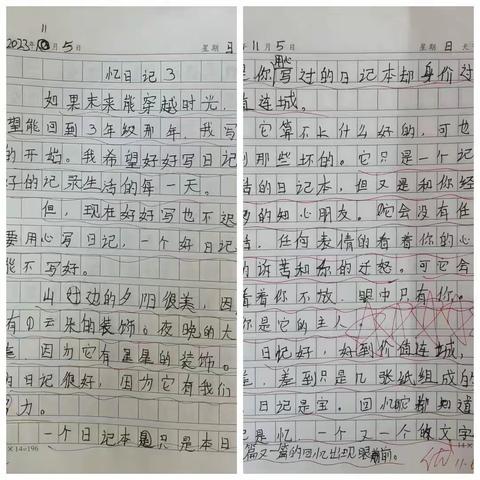 11
2023年10月5日 星期日
忆日记3
如果未来能穿越时光,
望能回到3年级那年,我写
的开始。我希望好好写日记
好的记录生活的每一天。
但,现在好好写也不迟
要用心写日记,一个好日记
能不写好。
山边的夕阳很美,因
有云朵的装饰。夜晚的大
,因为它有星星的装饰。
的日记很好,因为它有我们
力。
一个日记本是只是本日
×14=196
年11月5日 星期日 天
用心
是你写过的日记本却身价过
值连城。
它算不上什么好的,可也
到那些坏的。它只是一个记
活的日记本,但又是和你经
多的知心朋友。它会没有任
,任何表情的看着你的心
的诉苦和你的迁怒。可它会
看着你不放,眼中只有你。
你是它的主人,
日记好,好到价值连城,
差,差到只是几张纸组成的
日记是宝。回忆它都知道
记是忆,一个又一个的文字
篇又一篇的回忆出现眼前。
11.6